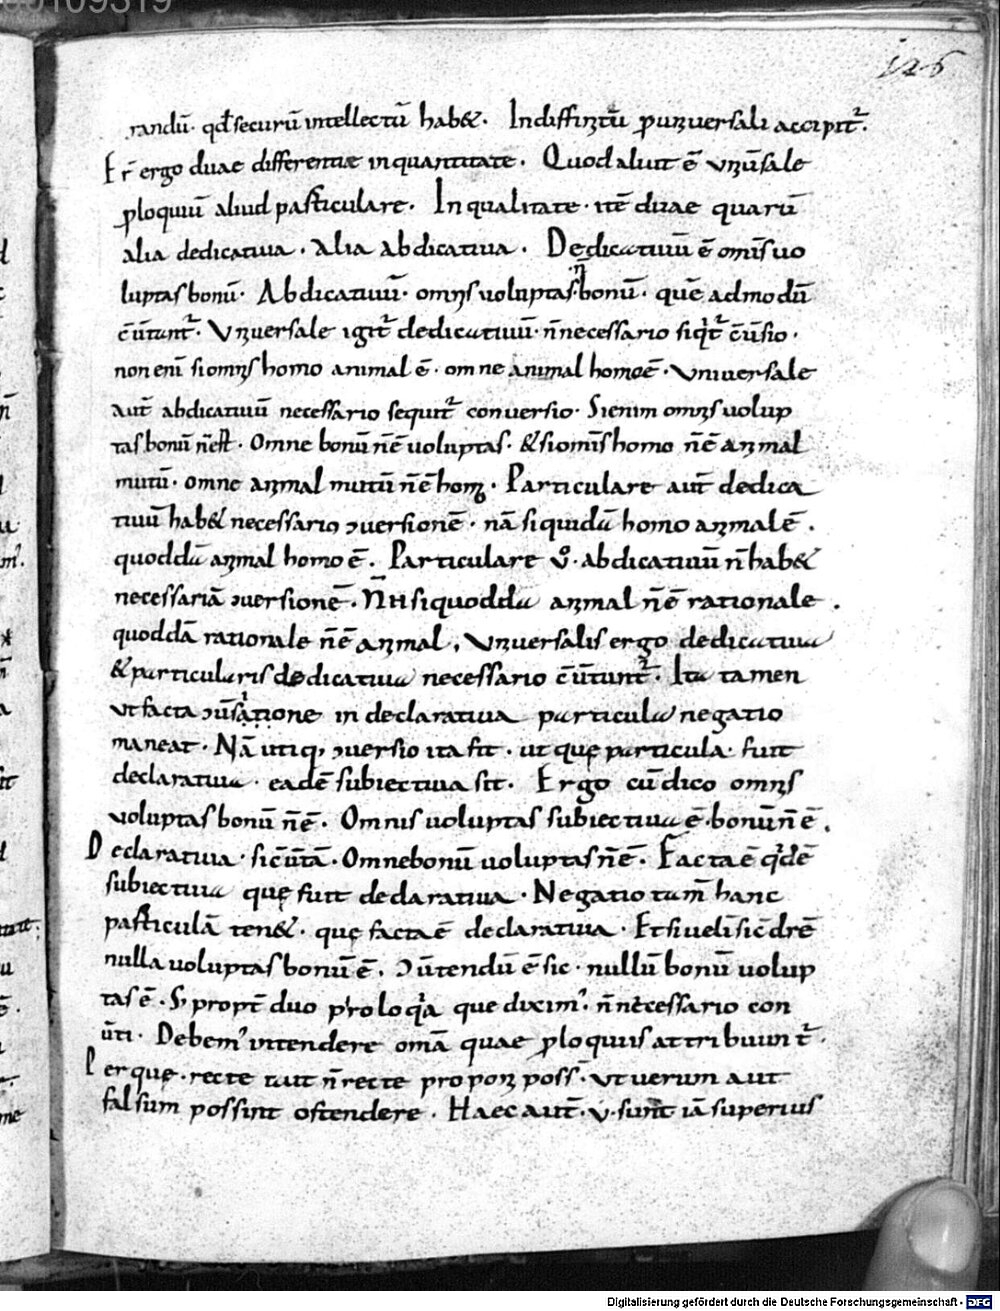 00109319
126
randū· qđ securū intellectū hab&· Indiffinitū p uniuersali accipit̄·
Er̄ ergo duae differentiae in quantitate· Quod aliut ē uniūsale
ploquiū aliud particulare· In qualitate· itē duae quarū
alia dedicatiua· Alia abdicatiua· Dedicatiuū ē omīs uo
luptas bonū· Abdicatiuū· omnis uoluptas n̄ bonū· quē admodū
c̄ūtunt̄· Uniuersale igit̄ dedicatiuū· n̄ necessario siqit̄ c̄ūsio·
non eni si omnis homo animal ē· omne animal homo ē· Uniuersale
aut̄ abdicatiuū necessario sequit̄ conuersio· Si enim omnis uolup
tas bonū n̄ est· Omne bonū n̄ ē uoluptas· & si omīs homo n̄ ē animal
mutū· omne animal mutū n̄ ē homo· Particulare aut̄ dedica
tiuū hab& necessario ɔuersionē· nā si quidā homo animal ē·
quoddā animal homo ē· Particulare ů· abdicatiuū n̄ hab&
necessariā ɔuersionē· N̄ si quoddā animal n̄ ē rationale·
quoddā rationale n̄ ē animal, Uniuersalis ergo dedicatiua
& particularis dedicatiua necessario c̄ūtunt̄· Ita tamen
ut facta ɔūsatione in declaratiua particula negatio
maneat· Nā utiq, ɔuersio ita fit· ut quę particula· fuit
declaratiua· eadē subiectiua sit· Ergo cū dico omnis
uoluptas bonū n̄ ē· Omnis uoluptas subiectiua ē· bonū n̄ ē·
Declaratiua· sic c̄ūtā· Omne bonū uoluptas n̄ ē· Facta ē qdē
subiectiua quę fuit declaratiua· Negatio tam̄ hanc
particulā ten&· quę facta ē declaratiua· Et si uelis ic̄ dr̄ē
nulla uoluptas bonū ē· ɔūtendū ē sic· nullū bonū uolup
tas ē· S; propt̄ duo proloqia que dixim'· n̄ necessario con
ūti· Debem' intendere omā quae ploquiis attribuunt̄·
Per quę· recte aut n̄ recte proponi poss̄· ut uerum aut
falsum possint ostendere· Haec aut̄· u· sunt iā superius
Digitalisierung gefördert durch die Deutsche Forschungsgemeinschaft - DFG